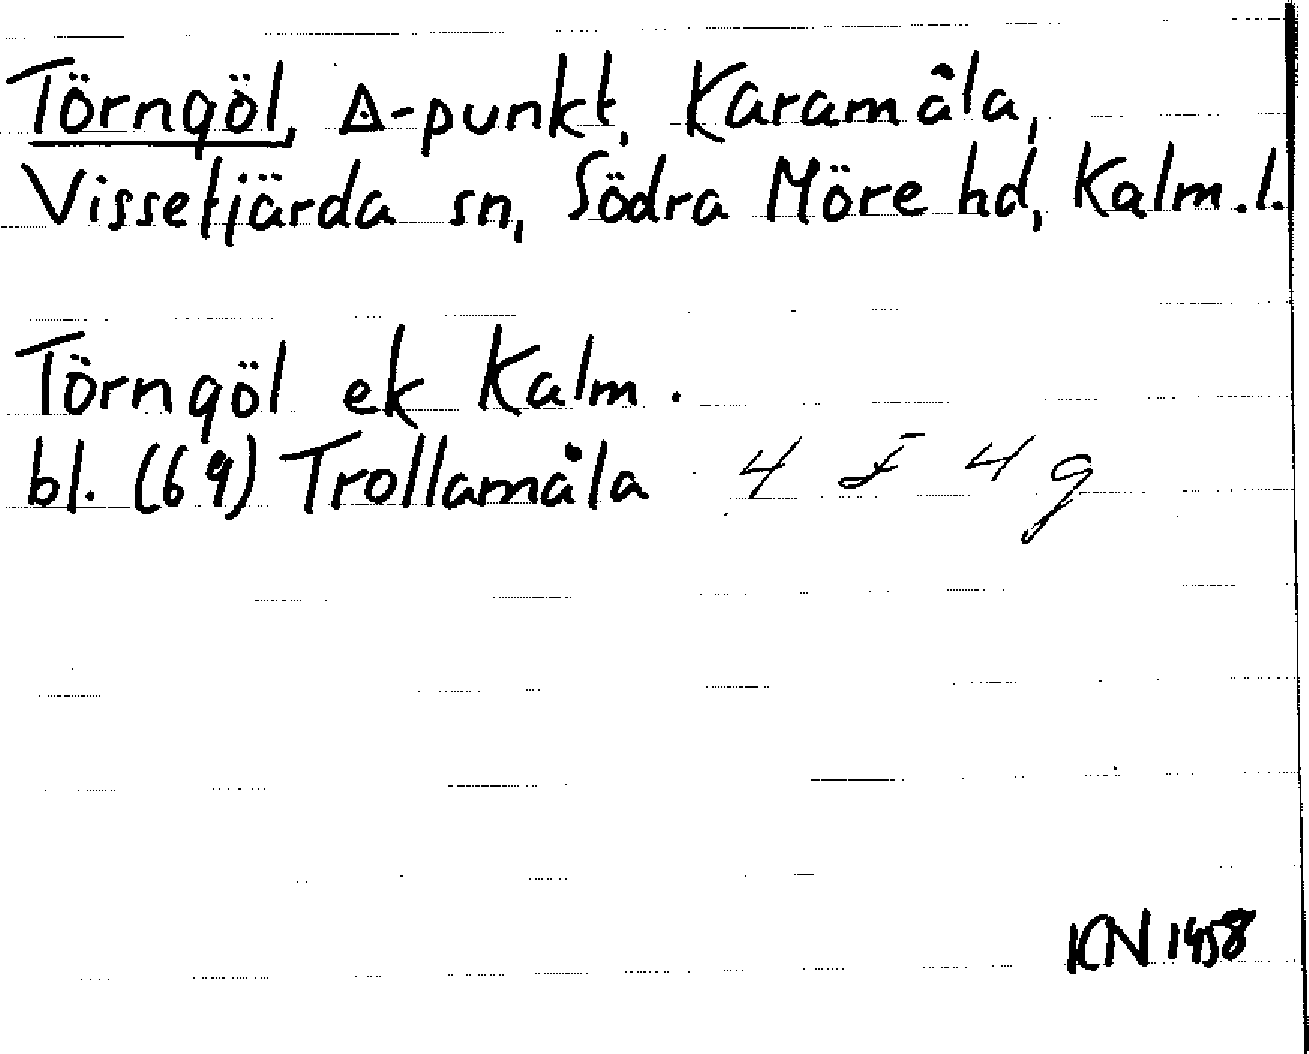 Törngöl, ◬-punkt, Karamåla,
Vissefjärda sn, Södra Möre hd, Kalm.l.
Törngöl ek Kalm.
bl. (69) Trollamåla 4 F 4 g
KN 1958